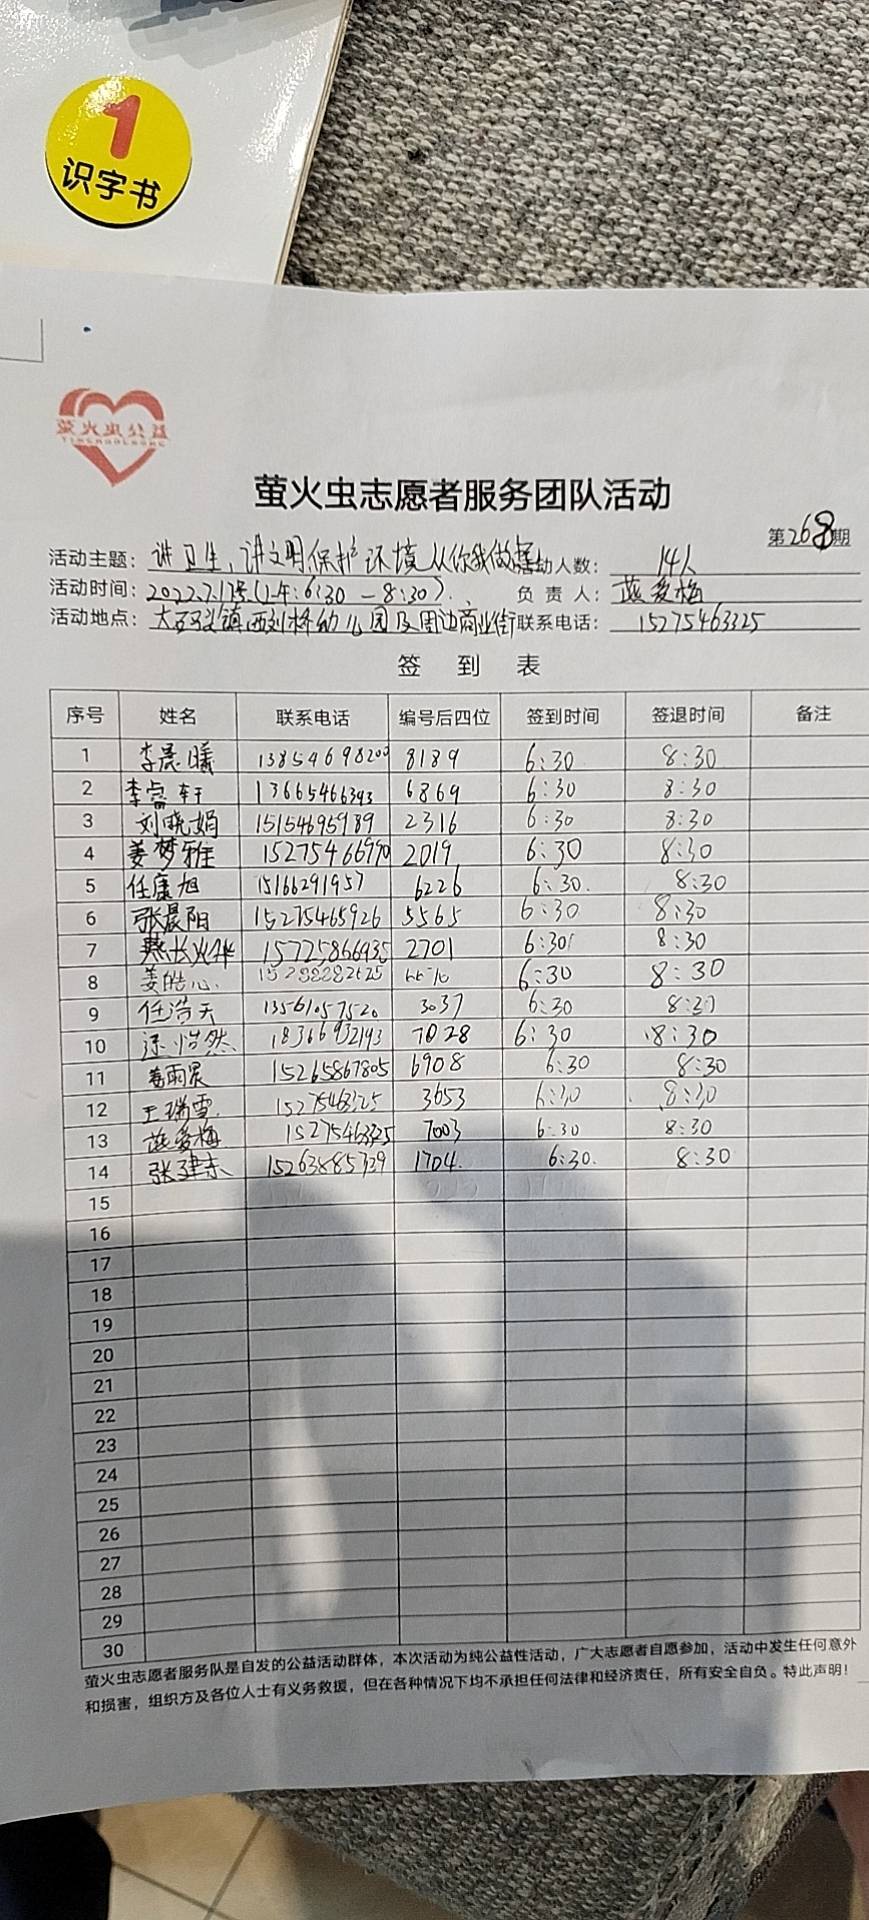 1
识字书
萤火虫公益
萤火虫志愿者服务团队活动
第268期
活动主题：讲卫生，讲文明保护环境从你我做 活动人数：14人
活动时间：2022.7.17号(上午:6:30-8:30). 负责人：燕爱梅
活动地点：大 镇西刘桥幼儿园及周边商业街 联系电话：15275463325
签到表
序号 姓名 联系电话 编号后四位 签到时间 签退时间 备注
1 李晨曦 13854698200 8189 6:30 8:30
2 李睿轩 13665466393 6869 6:30 8:30
3 刘晓娟 15154695989 2316 6:30 8:30
4 姜梦雅 15275466970 2019 6:30 8:30
5 任康旭 15166291957 6226 6:30. 8:30
6 张晨阳 15275465926 5565 6:30 8:30
7 燕长火华 15725866935 2701 6:30 8:30
8 姜皓心. 6:30 8:30
9 任浩天 13561057520 3037 6:30 8:30
10 浩然 18366932193 7028 6:30 8:30
11 姜雨晨 15265867805 6908 6:30 8:30
12 王瑞雪. 15275463325 3653 6:30 8:30
13 燕爱梅 15275463325 7003 6:30 8:30
14 张建东 1704. 6:30. 8:30
15
16
17
18
19
20
21
22
23
24
25
26
27
28
29
30
萤火虫志愿者服务队是自发的公益活动群体，本次活动为纯公益性活动，广大志愿者自愿参加，活动中发生任何意外
和损害，组织方及各位人士有义务救援，但在各种情况下均不承担任何法律和经济责任，所有安全自负。特此声明！